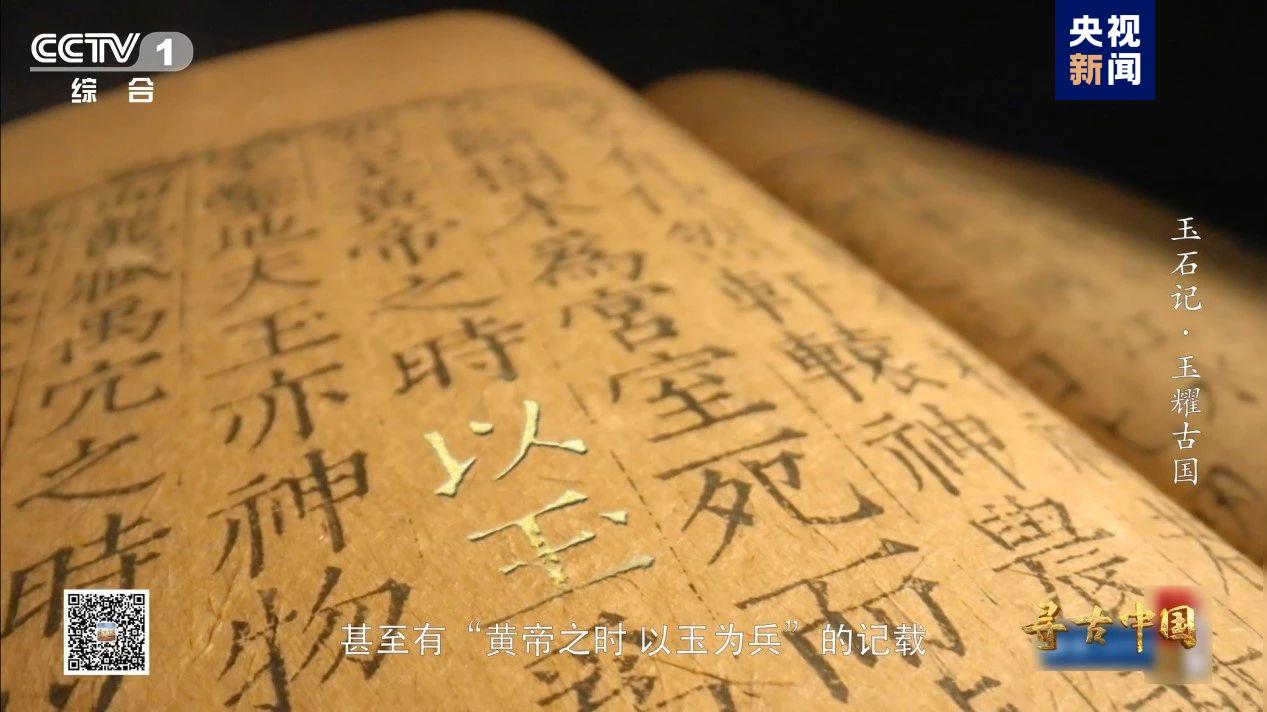 CCTV 1
综合
央视
新闻
玉石记·玉耀古国
使然軒轅神農
樹木為宮室死而
黃帝之時以玉
地夫玉亦神物
龍臧禹穴之時
甚至有“黄帝之时 以玉为兵”的记载
寻古中国